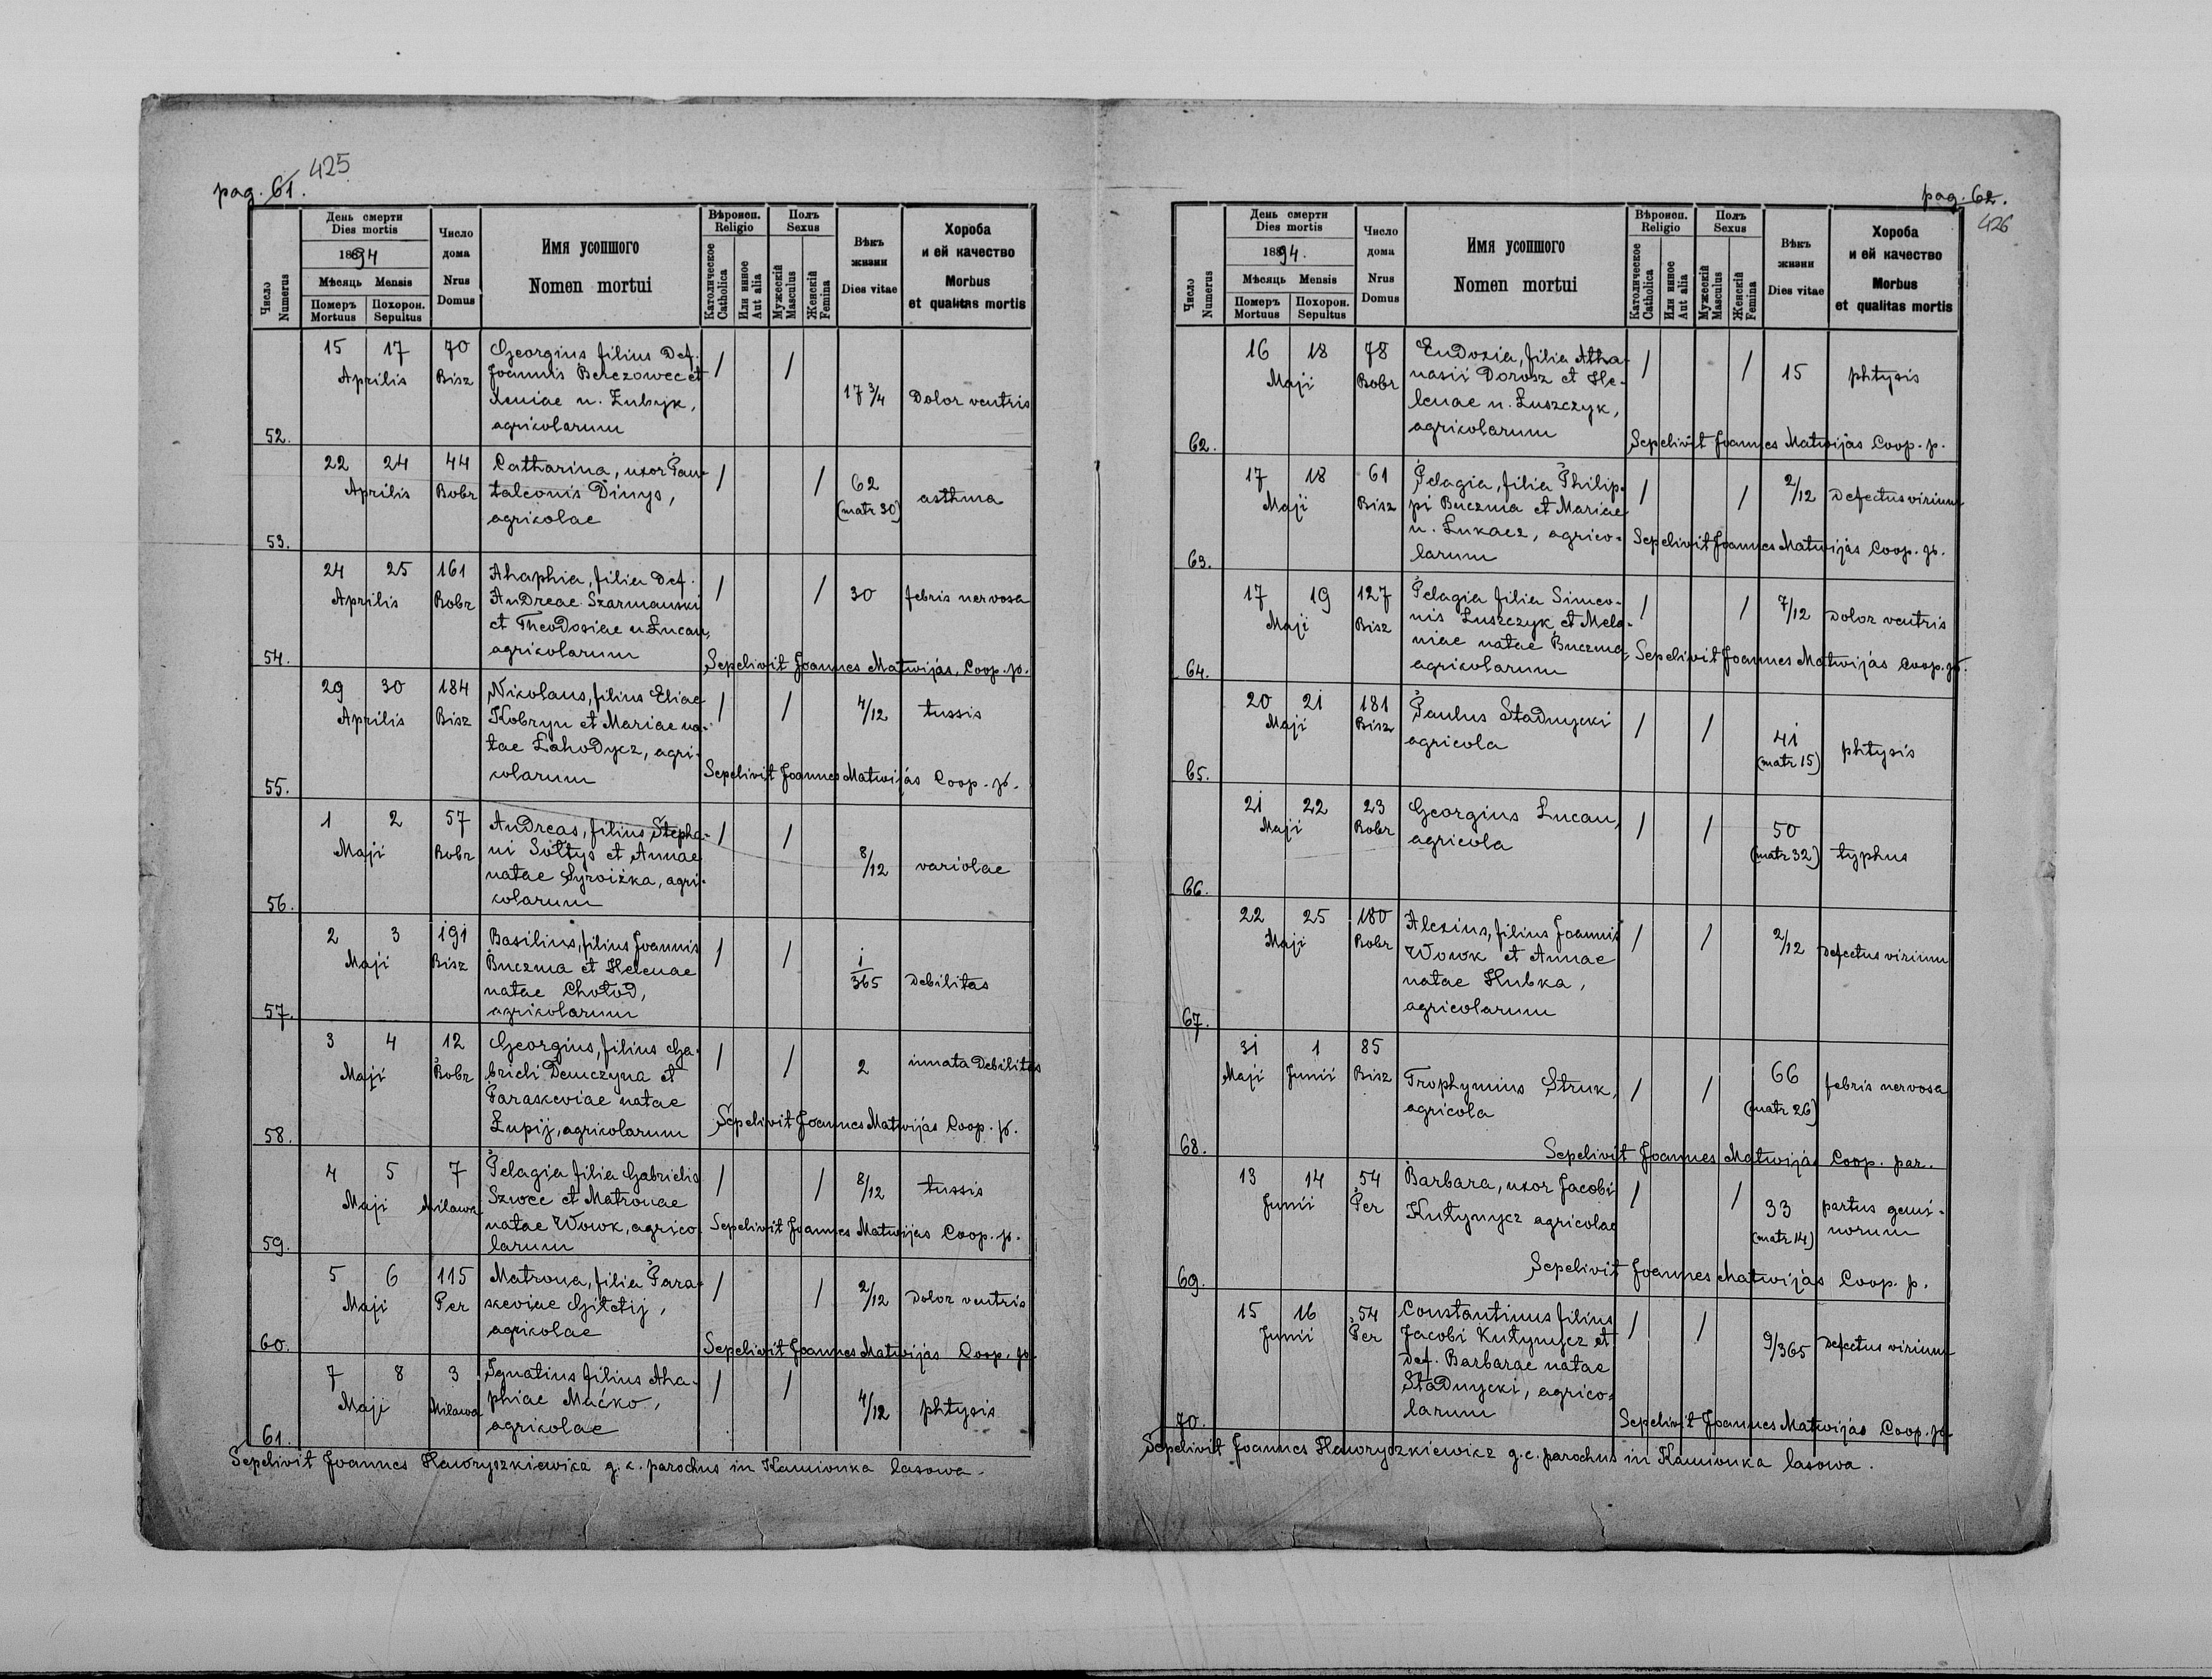 pag. 61. 425
Число Numerus
День смерти
Dies mortis
1894
Мѣсяць Mensis
Померъ Похорон.
Mortuus Sepultus
Число
дома
Nrus
Domus
Имя усопшого
Nomen mortui
Вѣроисп.
Religio
Католическое Catholica
Или инное Aut alia
Полъ
Sexus
Мужескій Masculus
Женскій Femina
Вѣкъ
жизни
Dies vitae
Хороба
и ей качество
Morbus
et qualitas mortis
52. 15 17 Aprilis 70 Bisz
Georgius filius def.
Joannis Berezowec et
Xeniae n. Zubyk,
agricolarum
/ / 17 3/4 Dolor ventris
53. 22 24 Aprilis 44 Bobr
Catharina, uxor Pan-
taleonis Dinys,
agricolae
/ / 62 (matr 30) asthma
54. 24 25 Aprilis 161 Bobr
Ahaphia, filia def.
Andreae Szarmanski
et Theodosiae n Lucan,
agricolarum
/ / 30 febris nervosa
Sepelivit Joannes Matwijas, Coop. p.
55. 29 30 Aprilis 184 Bisz
Nikolaus, filius Eliae
Kobryn et Mariae na-
tae Łahodycz, agri-
colarum
/ / 4/12 tussis
Sepelivit Joannes Matwijas Coop. p.
56. 1 2 Maji 57 Bobr
Andreas, filius Stepha-
ni Sołtys et Annae
natae Syroiżka, agri-
colarum
/ / 8/12 variolae
57. 2 3 Maji 191 Bisz
Basilius, filius Joannis
Buczma et Helenae
natae Chołod,
agricolarum
/ / 1/365 Debilitas
58. 3 4 Maji 12 Bobr
Georgius, filius Ga-
brieli Demczyna et
Paraskeviae natae
Łupij, agricolarum
/ / 2 innata Debilitas
Sepelivit Joannes Matwijas Coop. p.
59. 4 5 Maji 7 Milawa
Pelagia filia Gabrielis
Szwec et Matronae
natae Wowk, agrico-
larum
/ / 8/12 tussis
Sepelivit Joannes Matwijas Coop. p.
60. 5 6 Maji 115 Per
Matrona, filia Para-
skeviae Giletij,
agricolae
/ / 2/12 Dolor ventris
Sepelivit Joannes Matwijas Coop. p.
61. 7 8 Maji 3 Milawa
Ignatius filius Aha-
phiae Maćko,
agricolae
/ / 4/12 phtysis
Sepelivit Joannes Hawryszkiewicz g. c. parochus in Kamionka lasowa.
pag. 62.
426
Число Numerus
День смерти
Dies mortis
1894.
Мѣсяць Mensis
Померъ Похорон.
Mortuus Sepultus
Число
дома
Nrus
Domus
Имя усопшого
Nomen mortui
Вѣроисп.
Religio
Католическое Catholica
Или инное Aut alia
Полъ
Sexus
Мужескій Masculus
Женскій Femina
Вѣкъ
жизни
Dies vitae
Хороба
и ей качество
Morbus
et qualitas mortis
62. 16 18 Maji 78 Bobr
Eudoxia, filia Atha-
nasii Dorosz et He-
lenae n. Łuszczyk,
agricolarum
/ / 15 phtysis
Sepelivit Joannes Matwijas Coop. p.
63. 17 18 Maji 61 Bisz
Pelagia, filia Philip-
pi Buczma et Mariae
n. Lukacz, agrico-
larum
/ / 2/12 Defectus virium
Sepelivit Joannes Matwijas Coop. p.
64. 17 19 Maji 127 Bisz
Pelagia filia Simeo-
nis Łuszczyk et Mela-
niae natae Buczma,
agricolarum
/ / 7/12 Dolor ventris
Sepelivit Joannes Matwijas Coop. p.
65. 20 21 Maji 181 Bisz
Paulus Stadnycki
agricola
/ / 41 (matr 15) phtysis
66. 21 22 Maji 23 Bobr
Georgius Lucan,
agricola
/ / 50 (matr 32) typhus
67. 22 25 Maji 180 Bobr
Alexius, filius Joannis
Wowk et Annae
natae Hubka,
agricolarum
/ / 2/12 Defectus virium
68. 31 Maji 1 Junii 85 Bisz
Trophymius Struk,
agricola
/ / 66 (matr 26) febris nervosa
Sepelivit Joannes Matwijas Coop. par.
69. 13 14 Junii 54 Per
Barbara, uxor Jacobi
Kutynycz agricolae
/ / 33 (matr 14) partus gemi-
norum
Sepelivit Joannes Matwijas Coop. p.
70. 15 16 Junii 54 Per
Constantinus filius
Jacobi Kutynycz et
def. Barbarae natae
Stadnycki, agrico-
larum
/ / 9/365 Defectus virium
Sepelivit Joannes Matwijas Coop. p.
Sepelivit Joannes Hawryszkiewicz g. c. parochus in Kamionka lasowa.